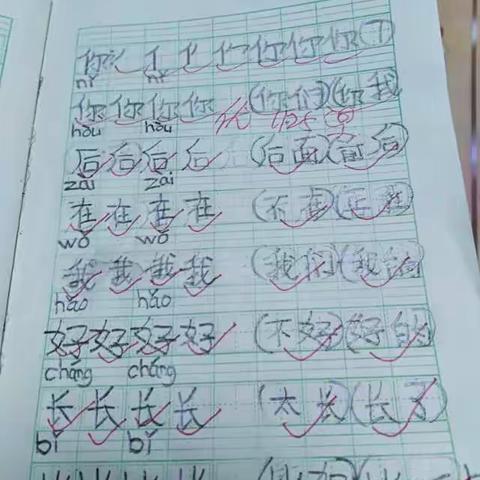 你 亻 亻 你 你 你 你 (7)
nǐ nǐ
你 你 你 你 (你们) (你我)
hòu hòu
优 1.25
后 后 后 后 (后面) (前后)
zài zài
在 在 在 在 (不在)
wǒ wǒ
我 我 我 我 (我们)
hǎo hǎo
好 好 好 好 (不好) (好的)
cháng cháng
长 长 长 长 (太长) (长了)
bǐ bǐ